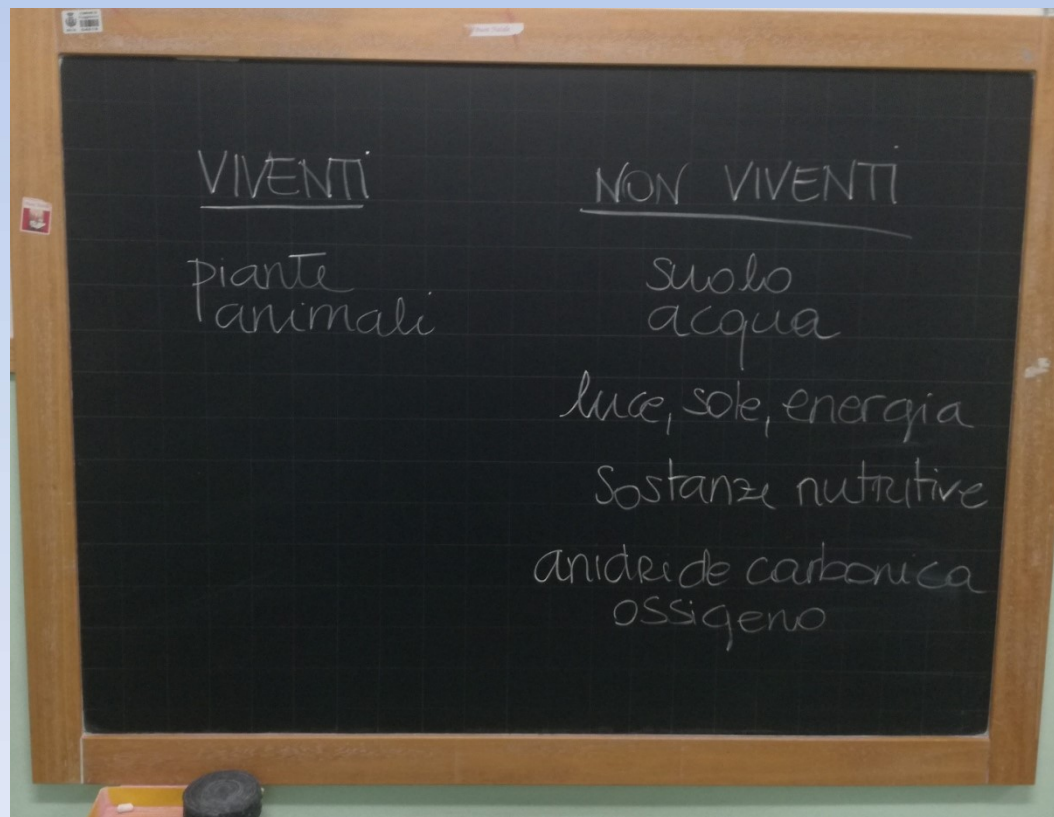 VIVENTI
piante
animali
NON VIVENTI
suolo
acqua
luce, sole, energia
sostanze nutritive
anidride carbonica
ossigeno